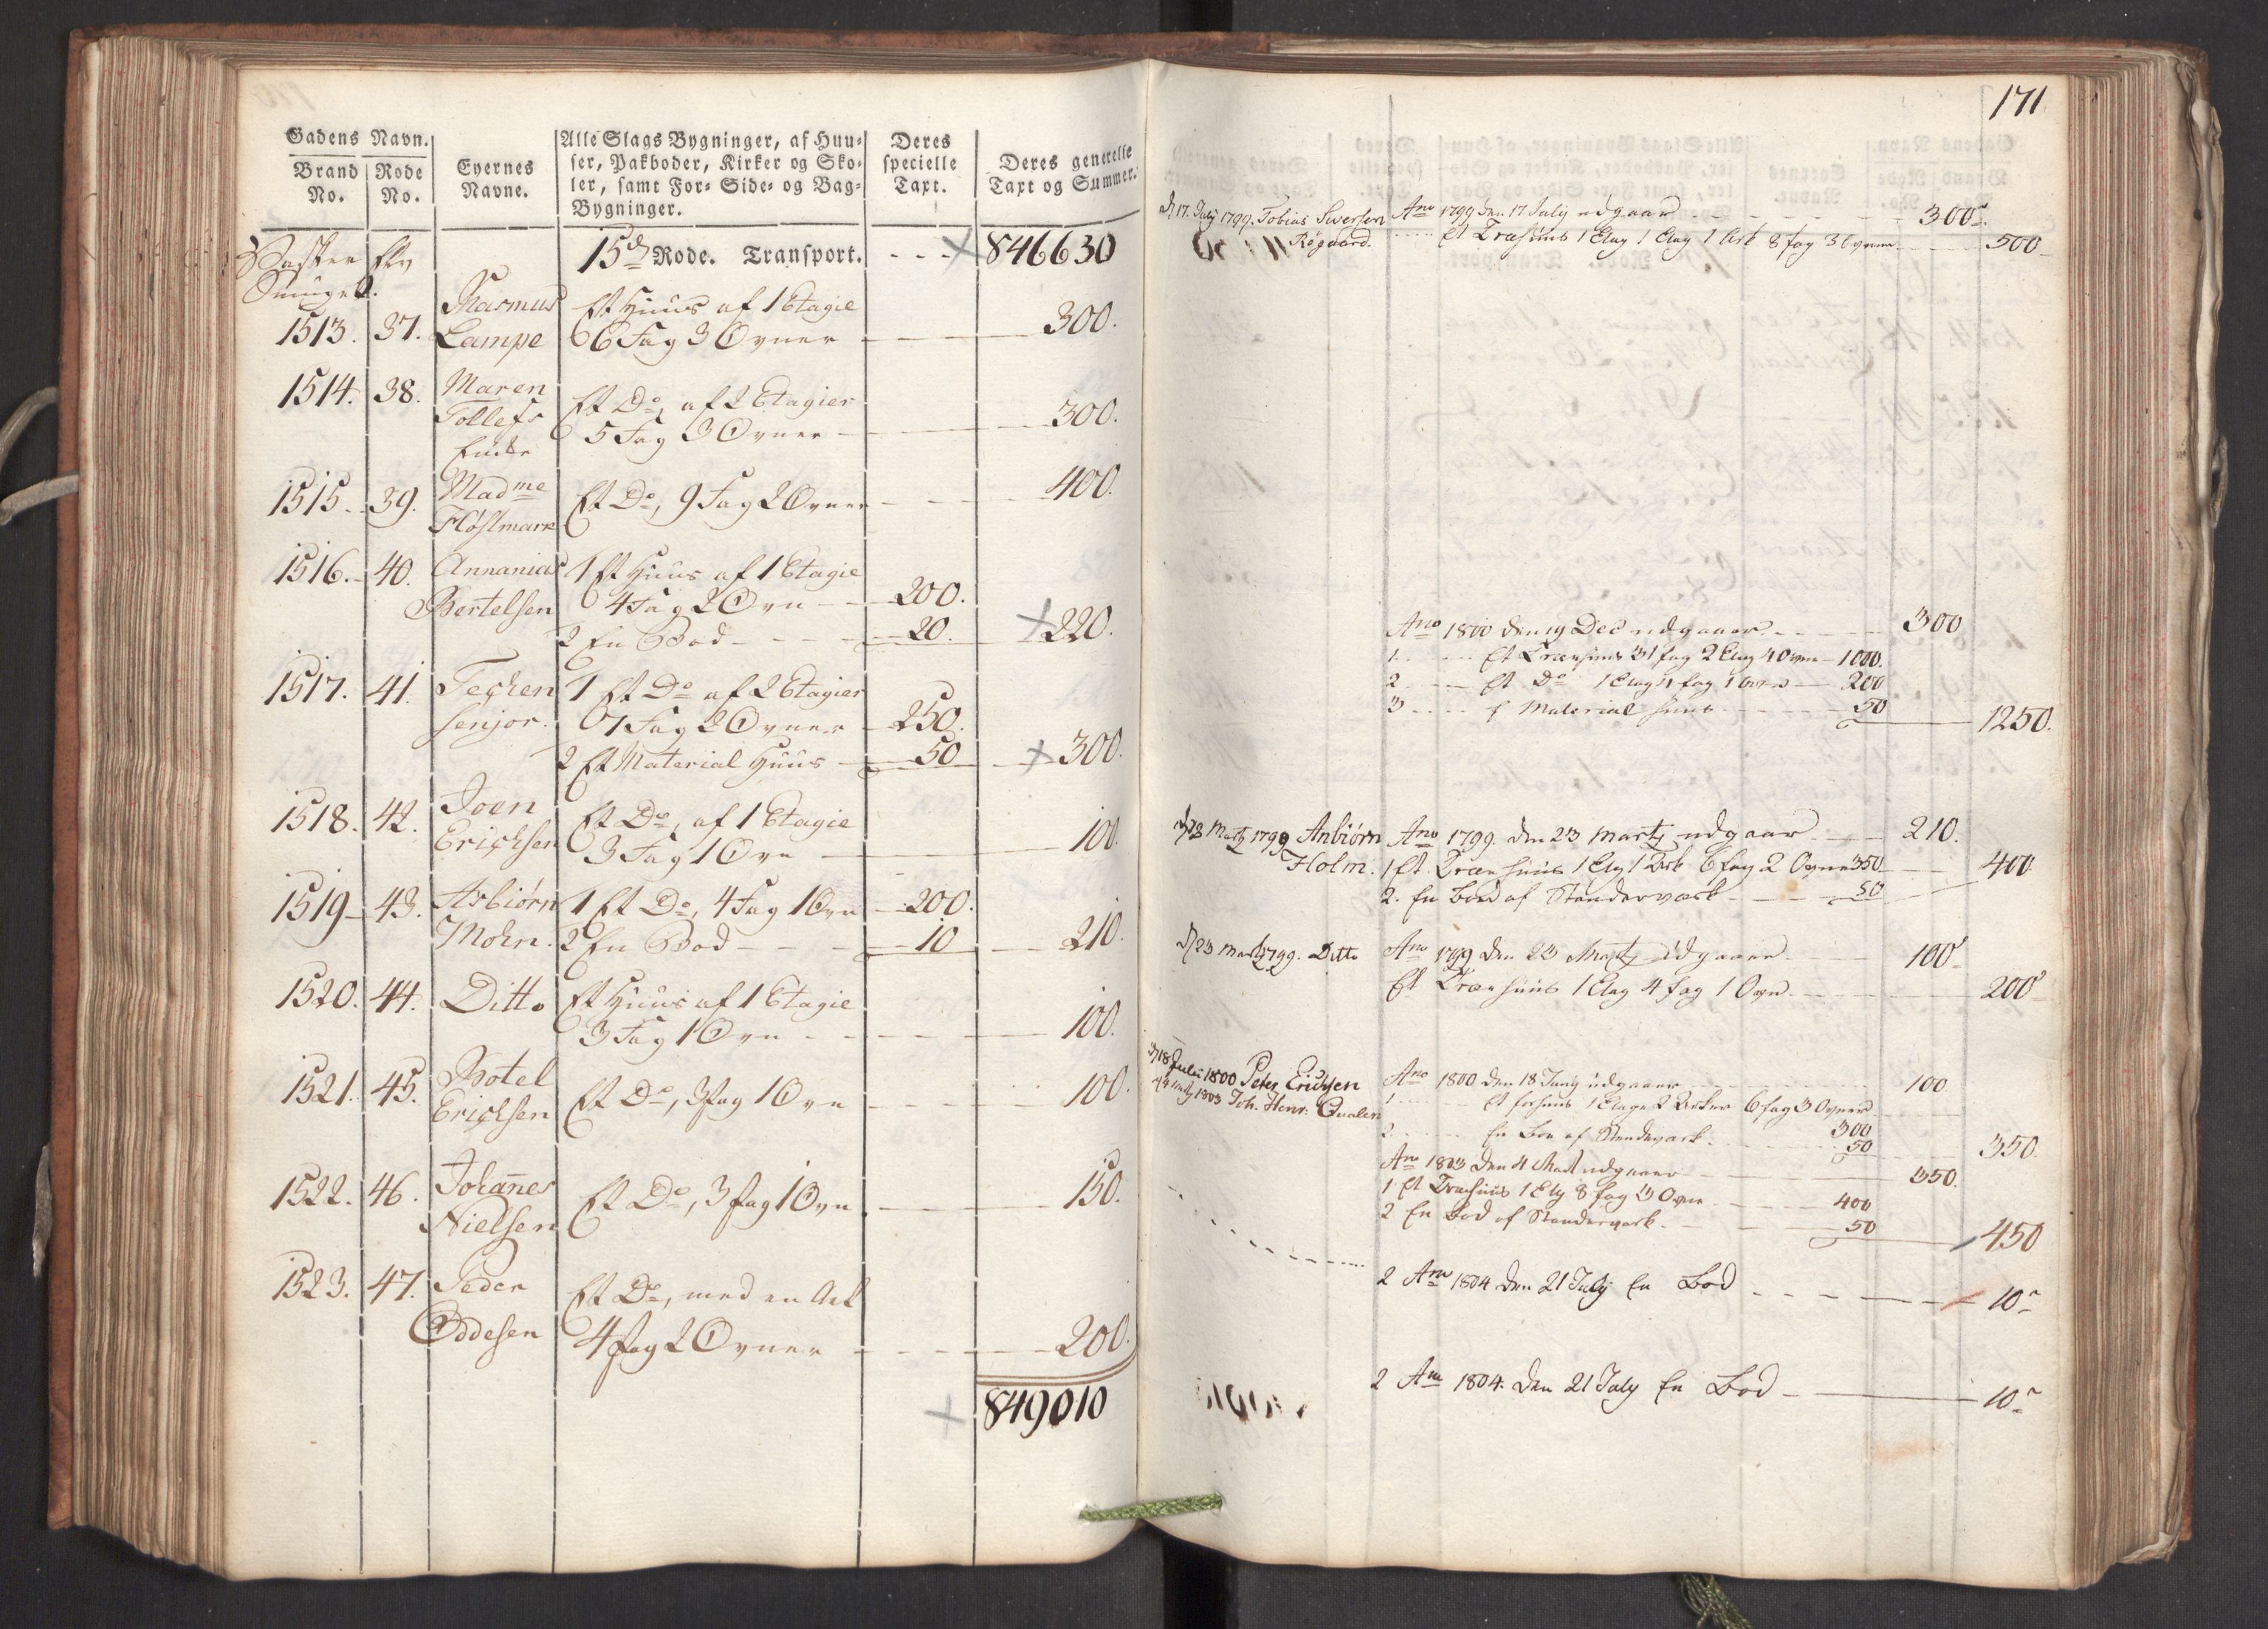 Gadens Navn.
Brand No. Rode No. Eyernes Navne. Alle Slags Bygninger, af Huuser, Pakboder, Kirker og Skoler, samt For- Side- og Bag-Bygninger. Deres specielle Taxt. Deres generelle Taxt og Summer.
15de Rode. Transport. - - - 846630
Smuget.
1513. 37. Rasmus Et Huus af 1 Etagie
Lampe 6 Fag 3 Ovner 300.
1514. 38. Maren Et Do, af 2 Etagier
Tollefs 5 Fag 3 Ovner 300.
Enke
1515. 39. Madme Et Do, 9 Fag 2 Ovner 400.
Fløslmark
1516. 40. Annanias 1 Et Huus af 1 Etagie
Bertelsen 4 Fag 2 Ovn 200.
2 En Bod 20. 220.
1517. 41. Techen 1 Et Do af 2 Etagier
senjor. 7 Fag 2 Ovner 250.
2 Et Material Huus 50 300.
1518. 42. Joen Et Do, af 1 Etagie
Erichsen 3 Fag 1 Ovn 100.
1519 43. Asbiørn 1 Et Do, 4 Fag 1 Ovn 200.
Mohn. 2 En Bod 10 210.
1520. 44. Ditto Et Huus af 1 Etagie
3 Fag 1 Ovn 100.
1521. 45. Botel Et Do, 3 Fag 1 Ovn 100.
Erichsen
1522. 46. Johannes Et Do, 3 fag 1 Ovn 150.
Nielsen
1523. 47. Peder Et Do, med en Ark
Oddesen 4 fag 2 Ovner 200.
849010
171
d 17. July 1799. Tobias Siversen Ano 1799 den 17 July udgaar 300
Røgaard. Et Træhuus 1 Etag 1 Ark 8 fag 3 Ovner 500
Ano 1800 den 19 Dec udgaaer 300
1 Et Træehuus 31 fag 2 Etag 4 Ovne 1000.
2 Et Do 1 Etag 4 fag 1 Ovn 200
3 1 Material huus 50 1250.
Martz 1799 Anbiørn Ano 1799. den 23 Martz udgaar 210.
Holm. 1 Et Træe huus 1 Etg 1 Ark 6 fag 2 Ovne 350 400
2. En Bod af Standerværk 50
d 23 Martz 1799. Ditto Ano 1799 den 23 Martz udgaaer 100
Et Træe huus 1 Etag 4 fag 1 Ovn 200
d 18 Juni 1800 Peter Erichsen Ano 1800 den 18 Juny udgaaer 100
1803 Joh. Henr. Qualen 1 Et forhuus 1 Etage 2 Arker 6 fag 3 Ovner
300
2 En Boe af Standerværk 50 350.
Ano 1803 den 4 Mart udgaaer 350.
1 Et Træehuus 1 Etg 8 fag 3 Ovne 400
2 En Bod af Standerværk 50 450
2 Ano 1804 den 21 July En Bod 10
2 Ano 1804. den 21 July En Bod 10